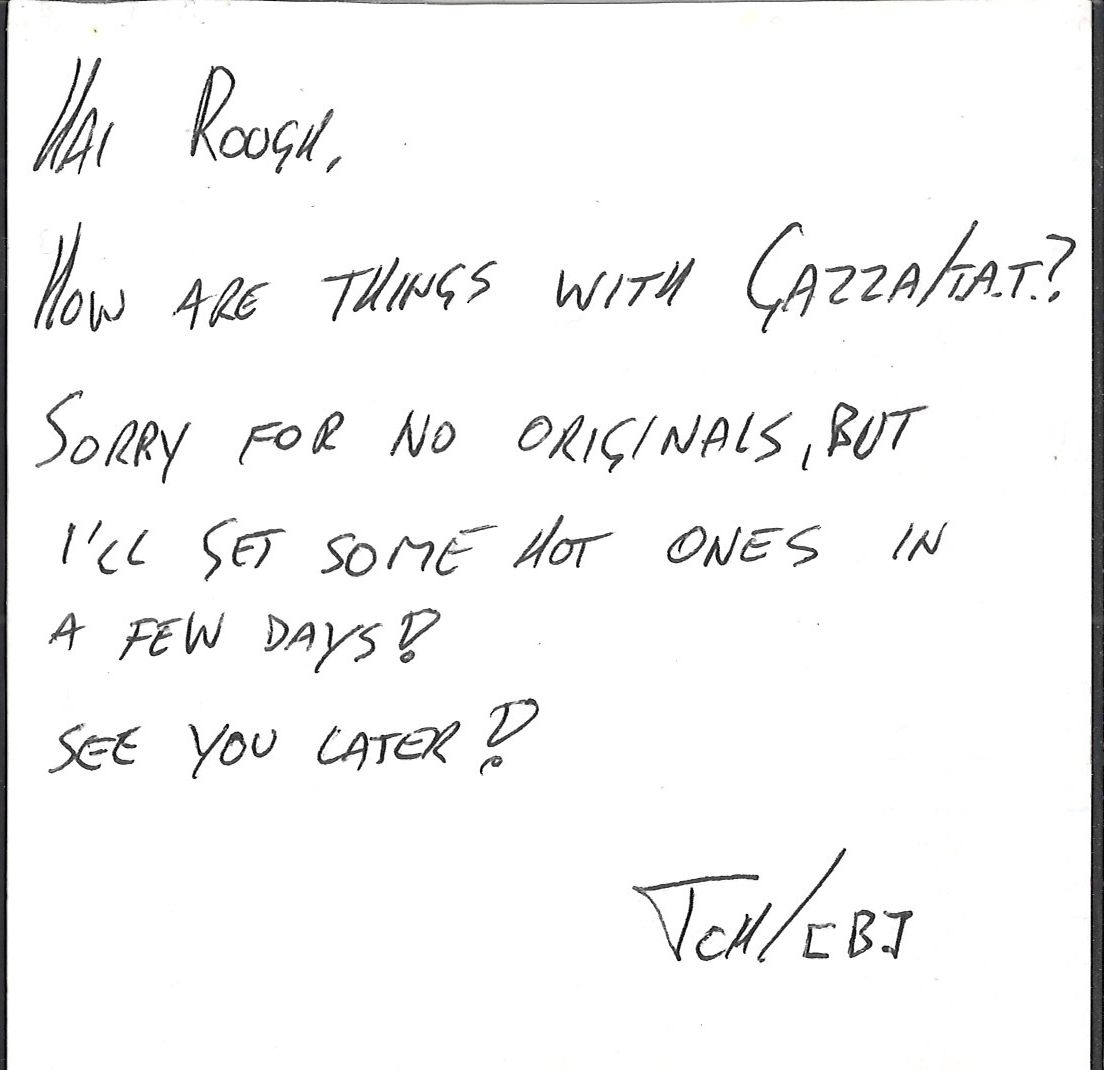 HAI ROUGH,
HOW ARE THINGS WITH GAZZA/T.A.T.?
SORRY FOR NO ORIGINALS, BUT
I'LL GET SOME HOT ONES IN
A FEW DAYS!
SEE YOU LATER!
TCH/CBJ